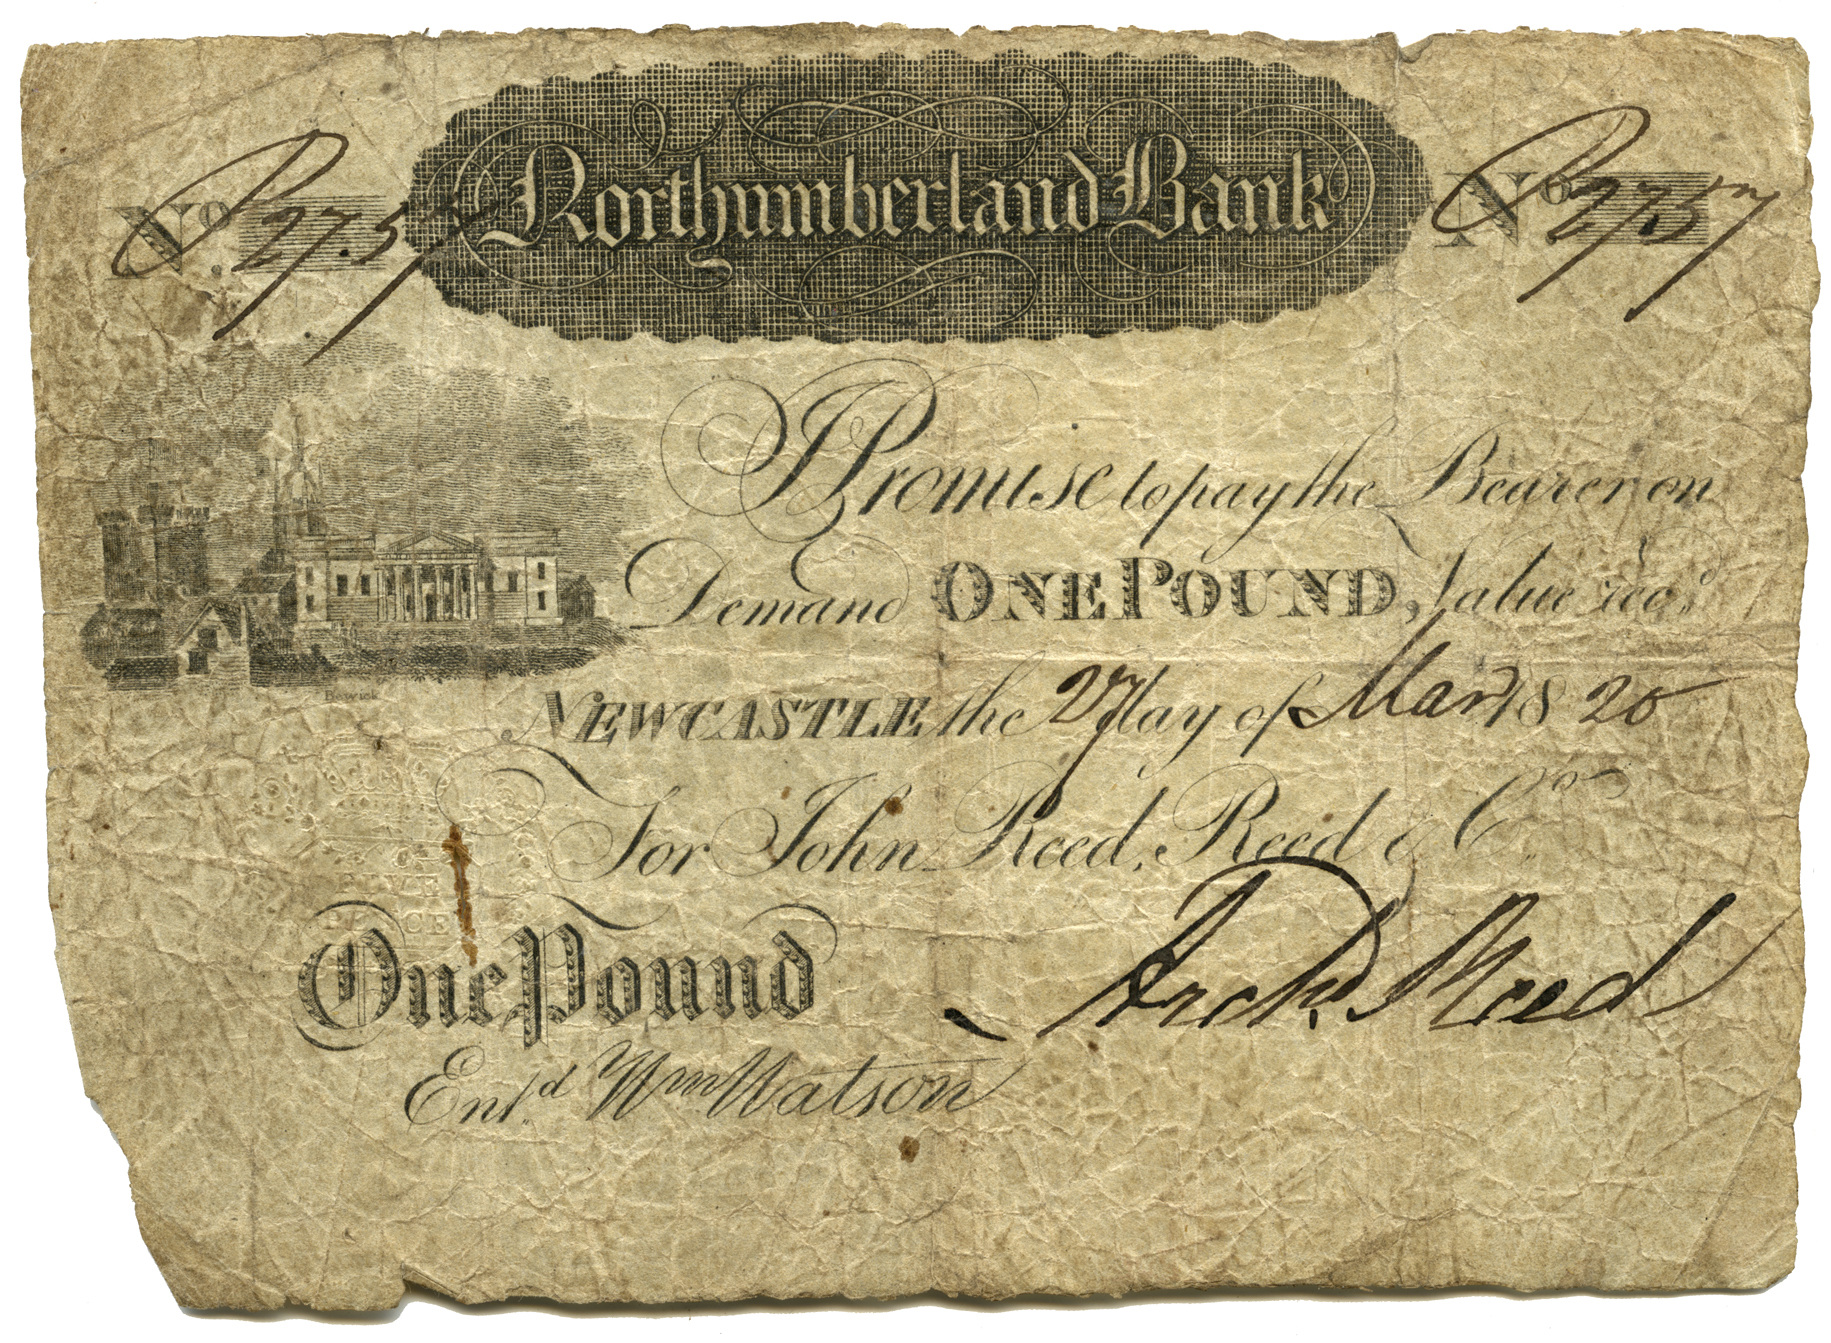 Northumberland Bank
No. P2757 No. P2757
I Promise to pay the Bearer on
Demand ONE POUND, Value recd.
Bewick
NEWCASTLE the 27 day of Mar 1820
For John Reed, Reed & Co.
FIVE
PENCE
One Pound
Archd. Reed
Entd. Wm Watson